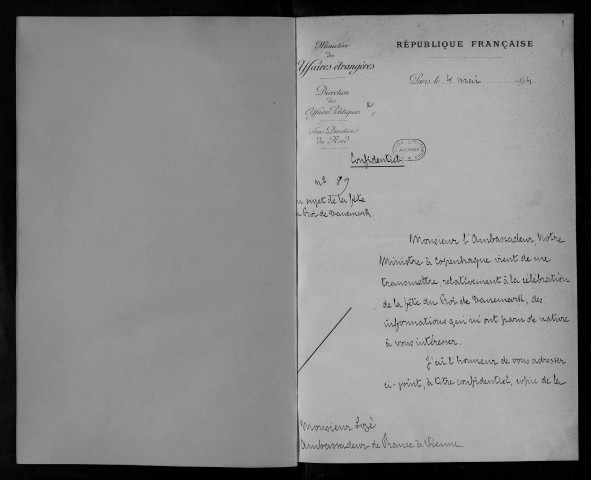 Ministère
des
Affaires étrangères
Direction
des
Affaires Politiques
Sous Direction
du Nord
RÉPUBLIQUE FRANÇAISE
Paris, le 4 mai 1894
Confidentiel
n° 89
au sujet de la fête
du Roi de Danemark.
Monsieur l'Ambassadeur, Notre
Ministre à Copenhague vient de me
transmettre, relativement à la célébration
de la fête du Roi de Danemark, des
informations qui m'ont paru de nature
à vous intéresser.
J'ai l'honneur de vous adresser
ci-joint, à titre confidentiel, copie de la
Monsieur Lozé
Ambassadeur de France à Vienne.